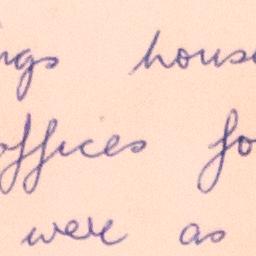 ngs house
offices fo
were as